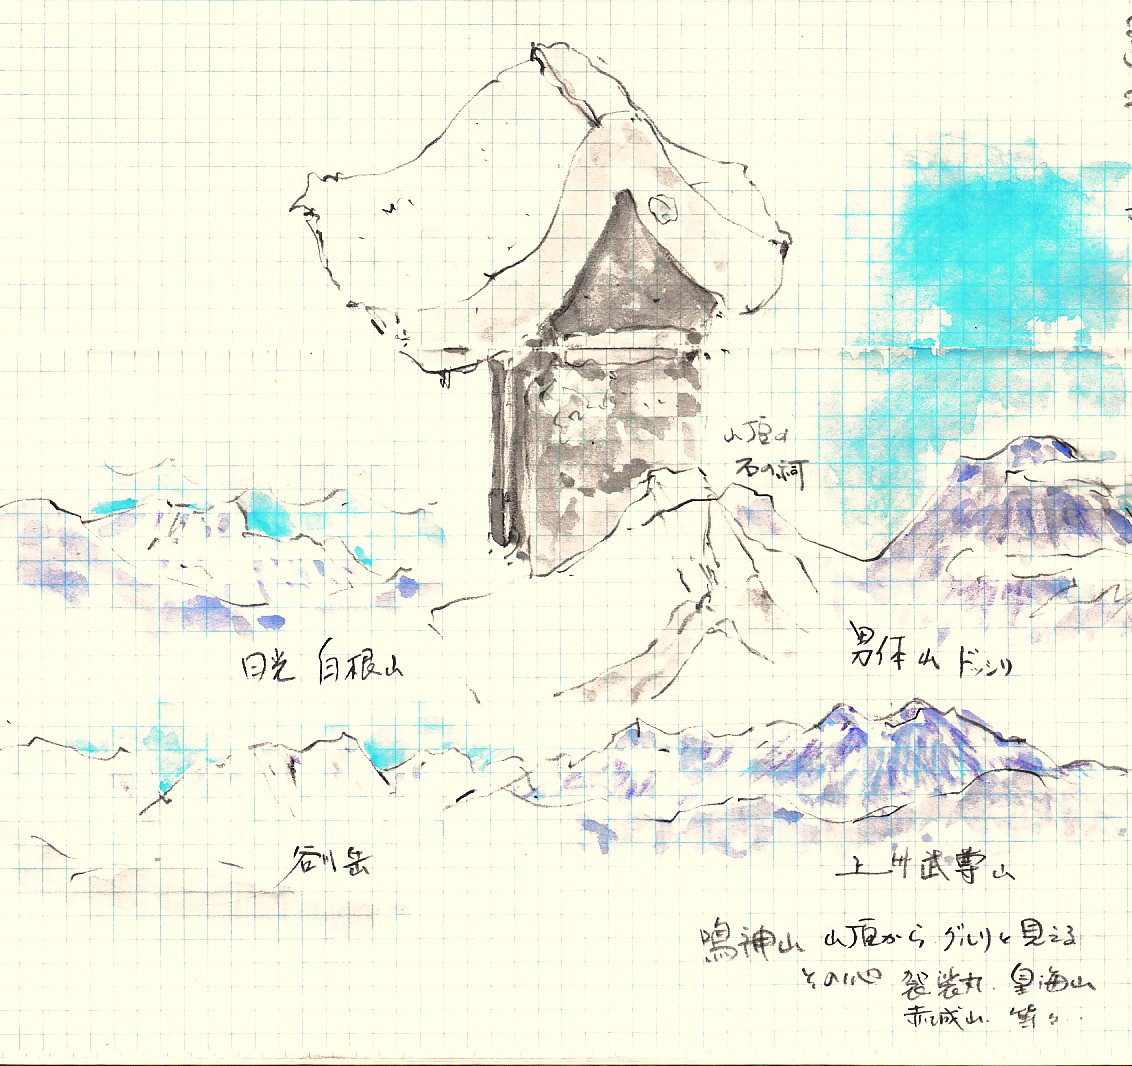 山頂の
石の祠
日光 白根山
男体山 ドッシリ
谷川岳
上州武尊山
鳴神山 山頂から グルリと見える
その他 袈裟丸. 皇海山
赤城山. 等々..